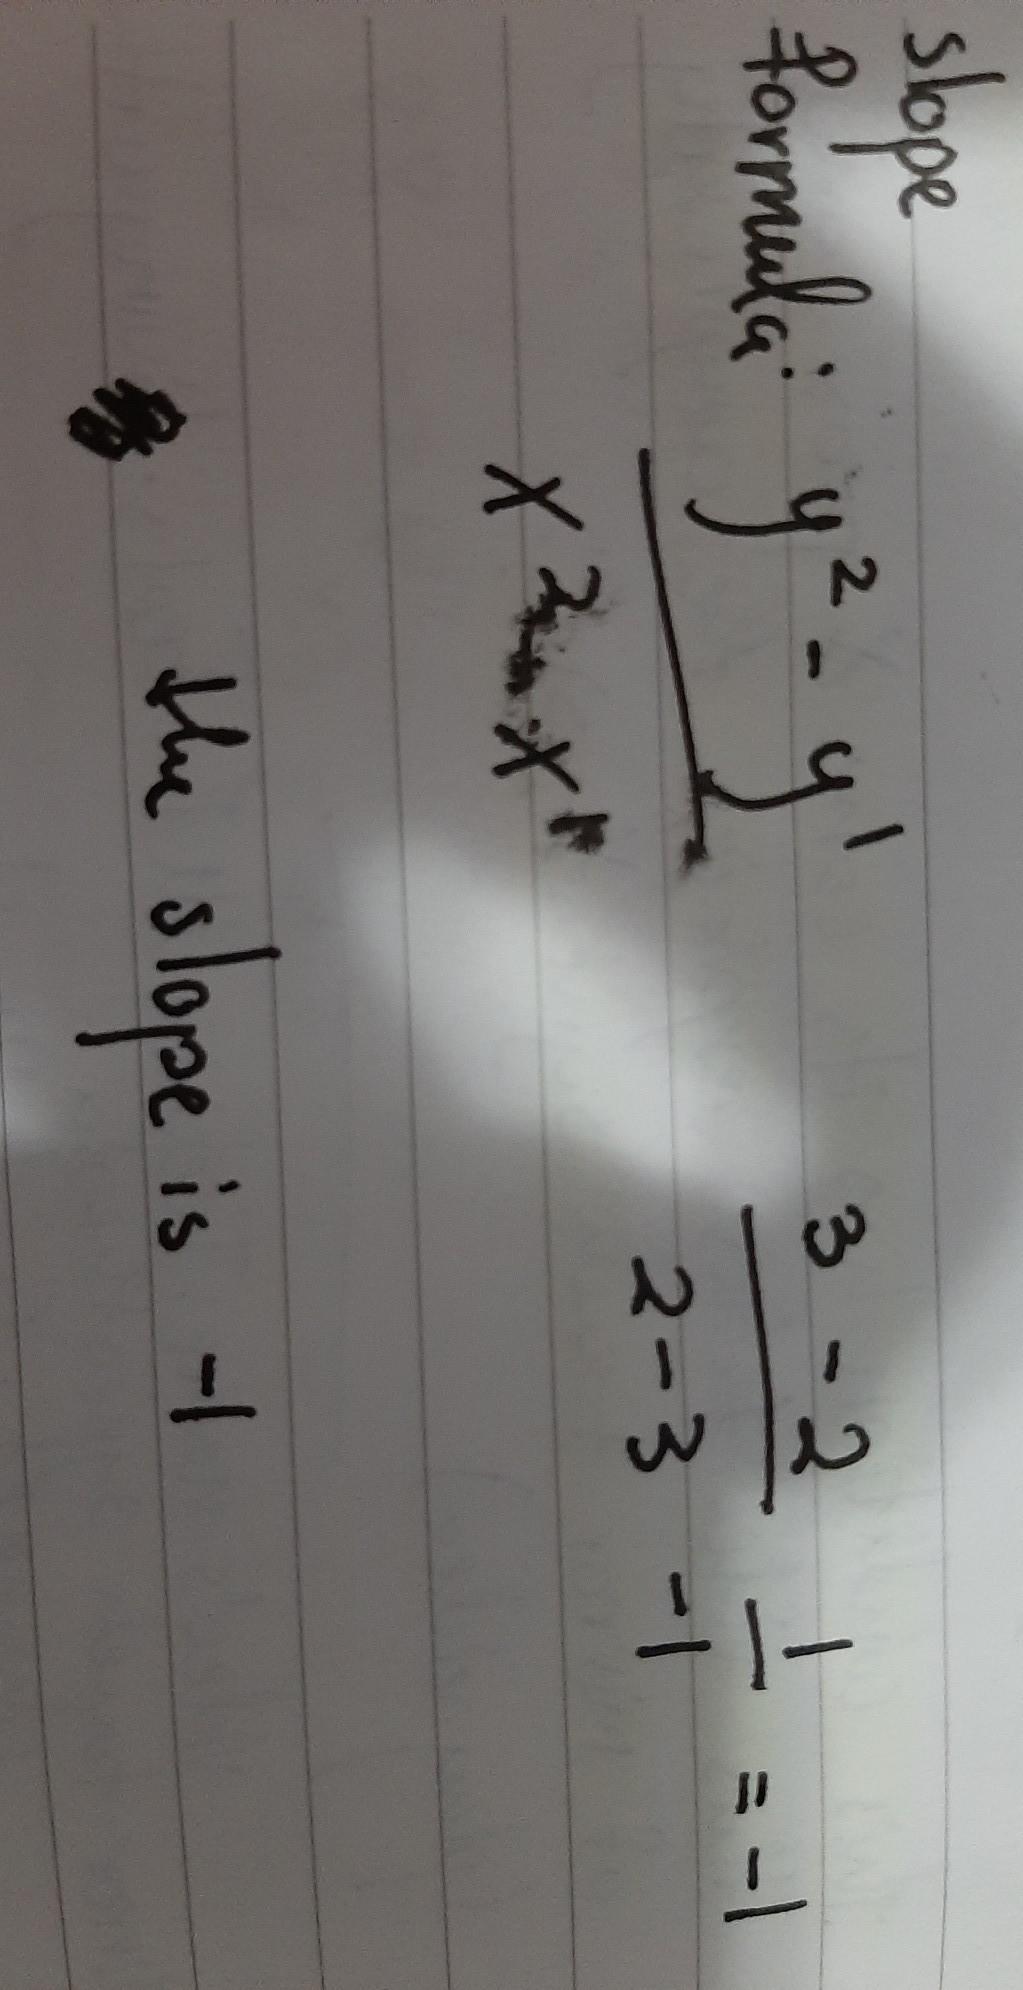 slope
formula: y² - y¹
x² - x¹
3 - 2
2 - 3
1
-1
= -1
the slope is -1